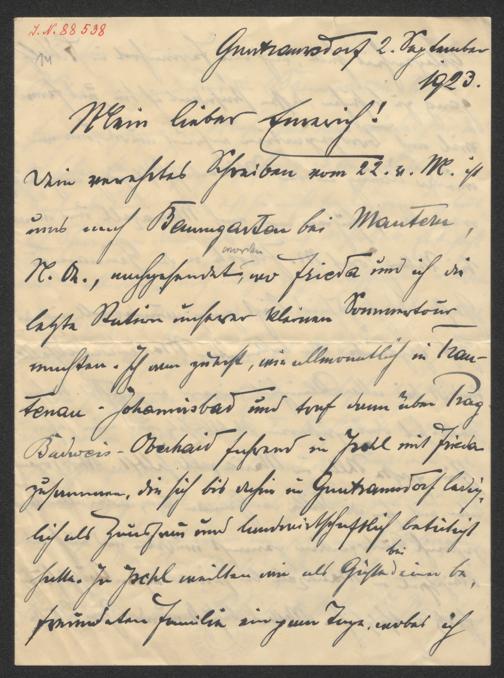 J.N. 88538
14
Guntramsdorf 2. September
1923.
Mein lieber Emerich!
Dein verehrtes Schreiben vom 22. v. M. ist
uns nach Baumgarten bei Mautern,
N. Oe., nachgesendet worden, wo Frieda und ich die
letzte Station unserer kleinen Sommertour
machten. Ich war zuerst, wie allmonatlich in Trau-
tenau - Johannisbad und traf dann über Prag
Budweis - Oberhaid fahrend in Ischl mit Frieda
zusammen, die sich bis dahin in Guntramsdorf ledig-
lich als Hausfrau und landwirtschaftlich betätigt
hatte. In Ischl weilten wir als Gäste bei einer be-
freundeten Familie ein paar Tage, wobei ich